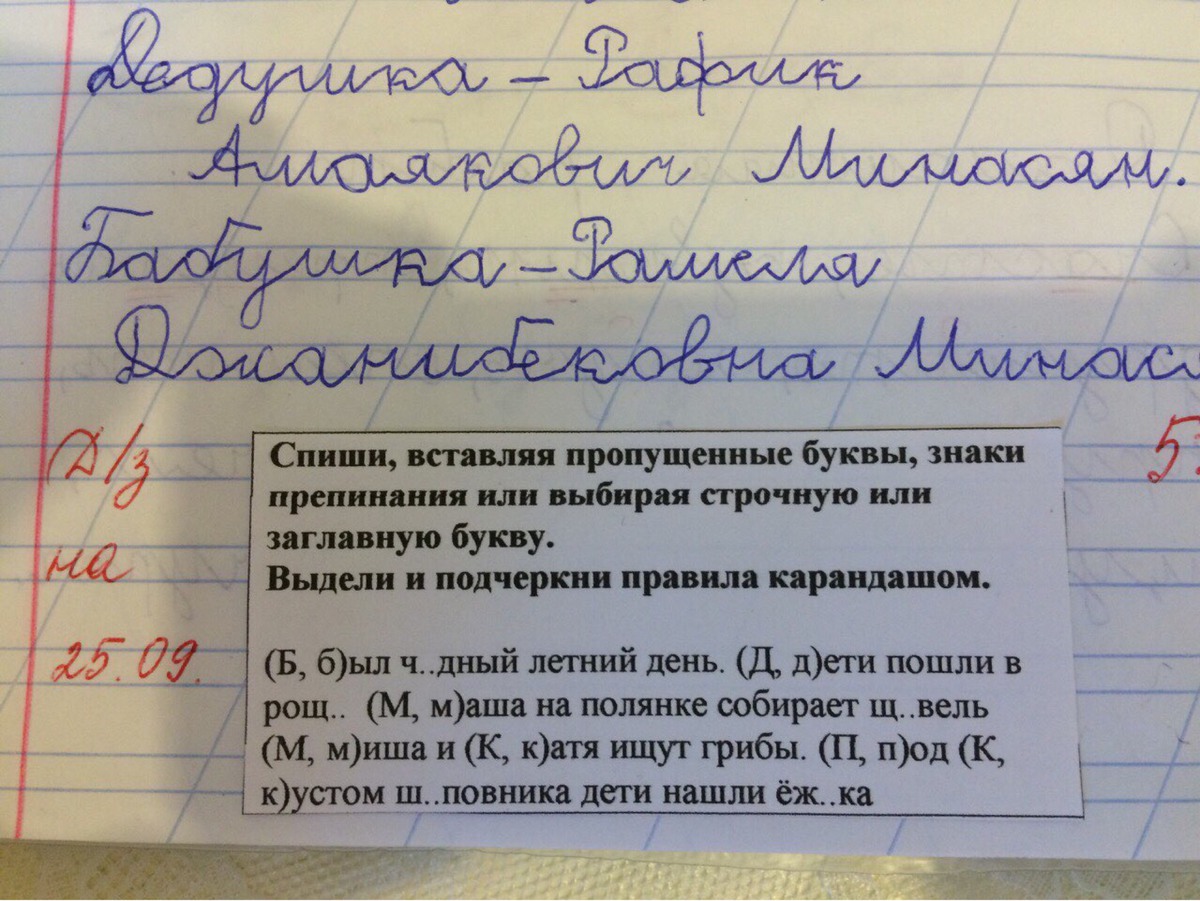 Дедушка – Рафик
Амаякович Минасян.
Бабушка – Рашеля
Джанибековна Минася
Д/з
на
25.09.
Спиши, вставляя пропущенные буквы, знаки
препинания или выбирая строчную или
заглавную букву.
Выдели и подчеркни правила карандашом.
(Б, б)ыл ч..дный летний день. (Д, д)ети пошли в
рощ.. (М, м)аша на полянке собирает щ..вель
(М, м)иша и (К, к)атя ищут грибы. (П, п)од (К,
к)устом ш..повника дети нашли ёж..ка